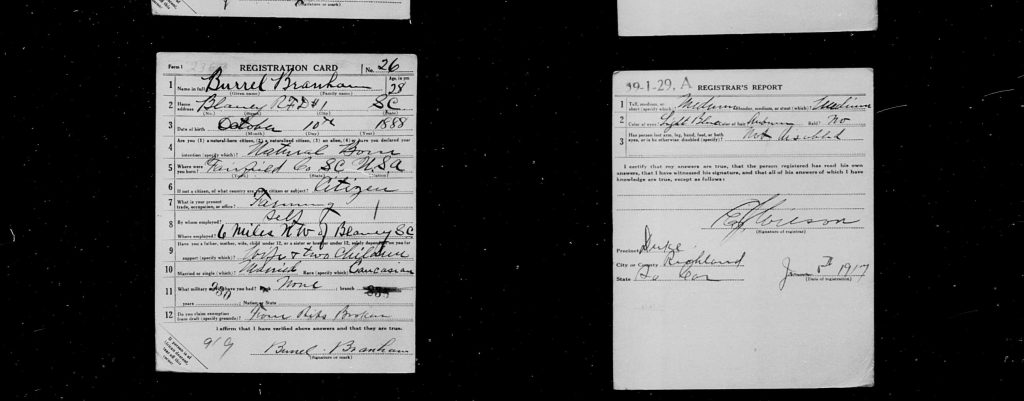 (Signature or mark)
Form 1 REGISTRATION CARD No. 26
1 Name in full Burrel Branham Age, in yrs. 28
(Given name) (Family name)
2 Home address Blaney RFD #1 SC
(No.) (Street) (City) (State)
3 Date of birth October 10th 1888
(Month) (Day) (Year)
4 Are you (1) a natural-born citizen, (2) a naturalized citizen, (3) an alien, (4) or have you declared your
intention (specify which)? Natural Born
5 Where were you born? Fairfield Co SC USA
(Town) (State) (Nation)
6 If not a citizen, of what country are you a citizen or subject? Citizen
7 What is your present trade, occupation, or office? Farming
8 By whom employed? Self
Where employed? 6 miles NW of Blaney SC
9 Have you a father, mother, wife, child under 12, or a sister or brother under 12, solely dependent on you for
support (specify which)? Wife & two Children
10 Married or single (which)? Married Race (specify which)? Caucasian
11 What military service have you had? Rank None ; branch
years ; Nation or State
12 Do you claim exemption from draft (specify grounds)? Ribs Broken
I affirm that I have verified above answers and that they are true.
Burrel Branham
(Signature or mark)
If person is of African descent, tear off this corner
39-1-29. A REGISTRAR'S REPORT
1 Tall, medium, or short (specify which)? Medium Slender, medium, or stout (which)? Medium
2 Color of eyes? Light Blue Color of hair? Bald? No
3 Has person lost arm, leg, hand, foot, or both
eyes, or is he otherwise disabled (specify)? Not
I certify that my answers are true, that the person registered has read his own
answers, that I have witnessed his signature, and that all of his answers of which I have
knowledge are true, except as follows:
(Signature of registrar)
Precinct
City or County Richland
State So Car 1917
(Date of registration)